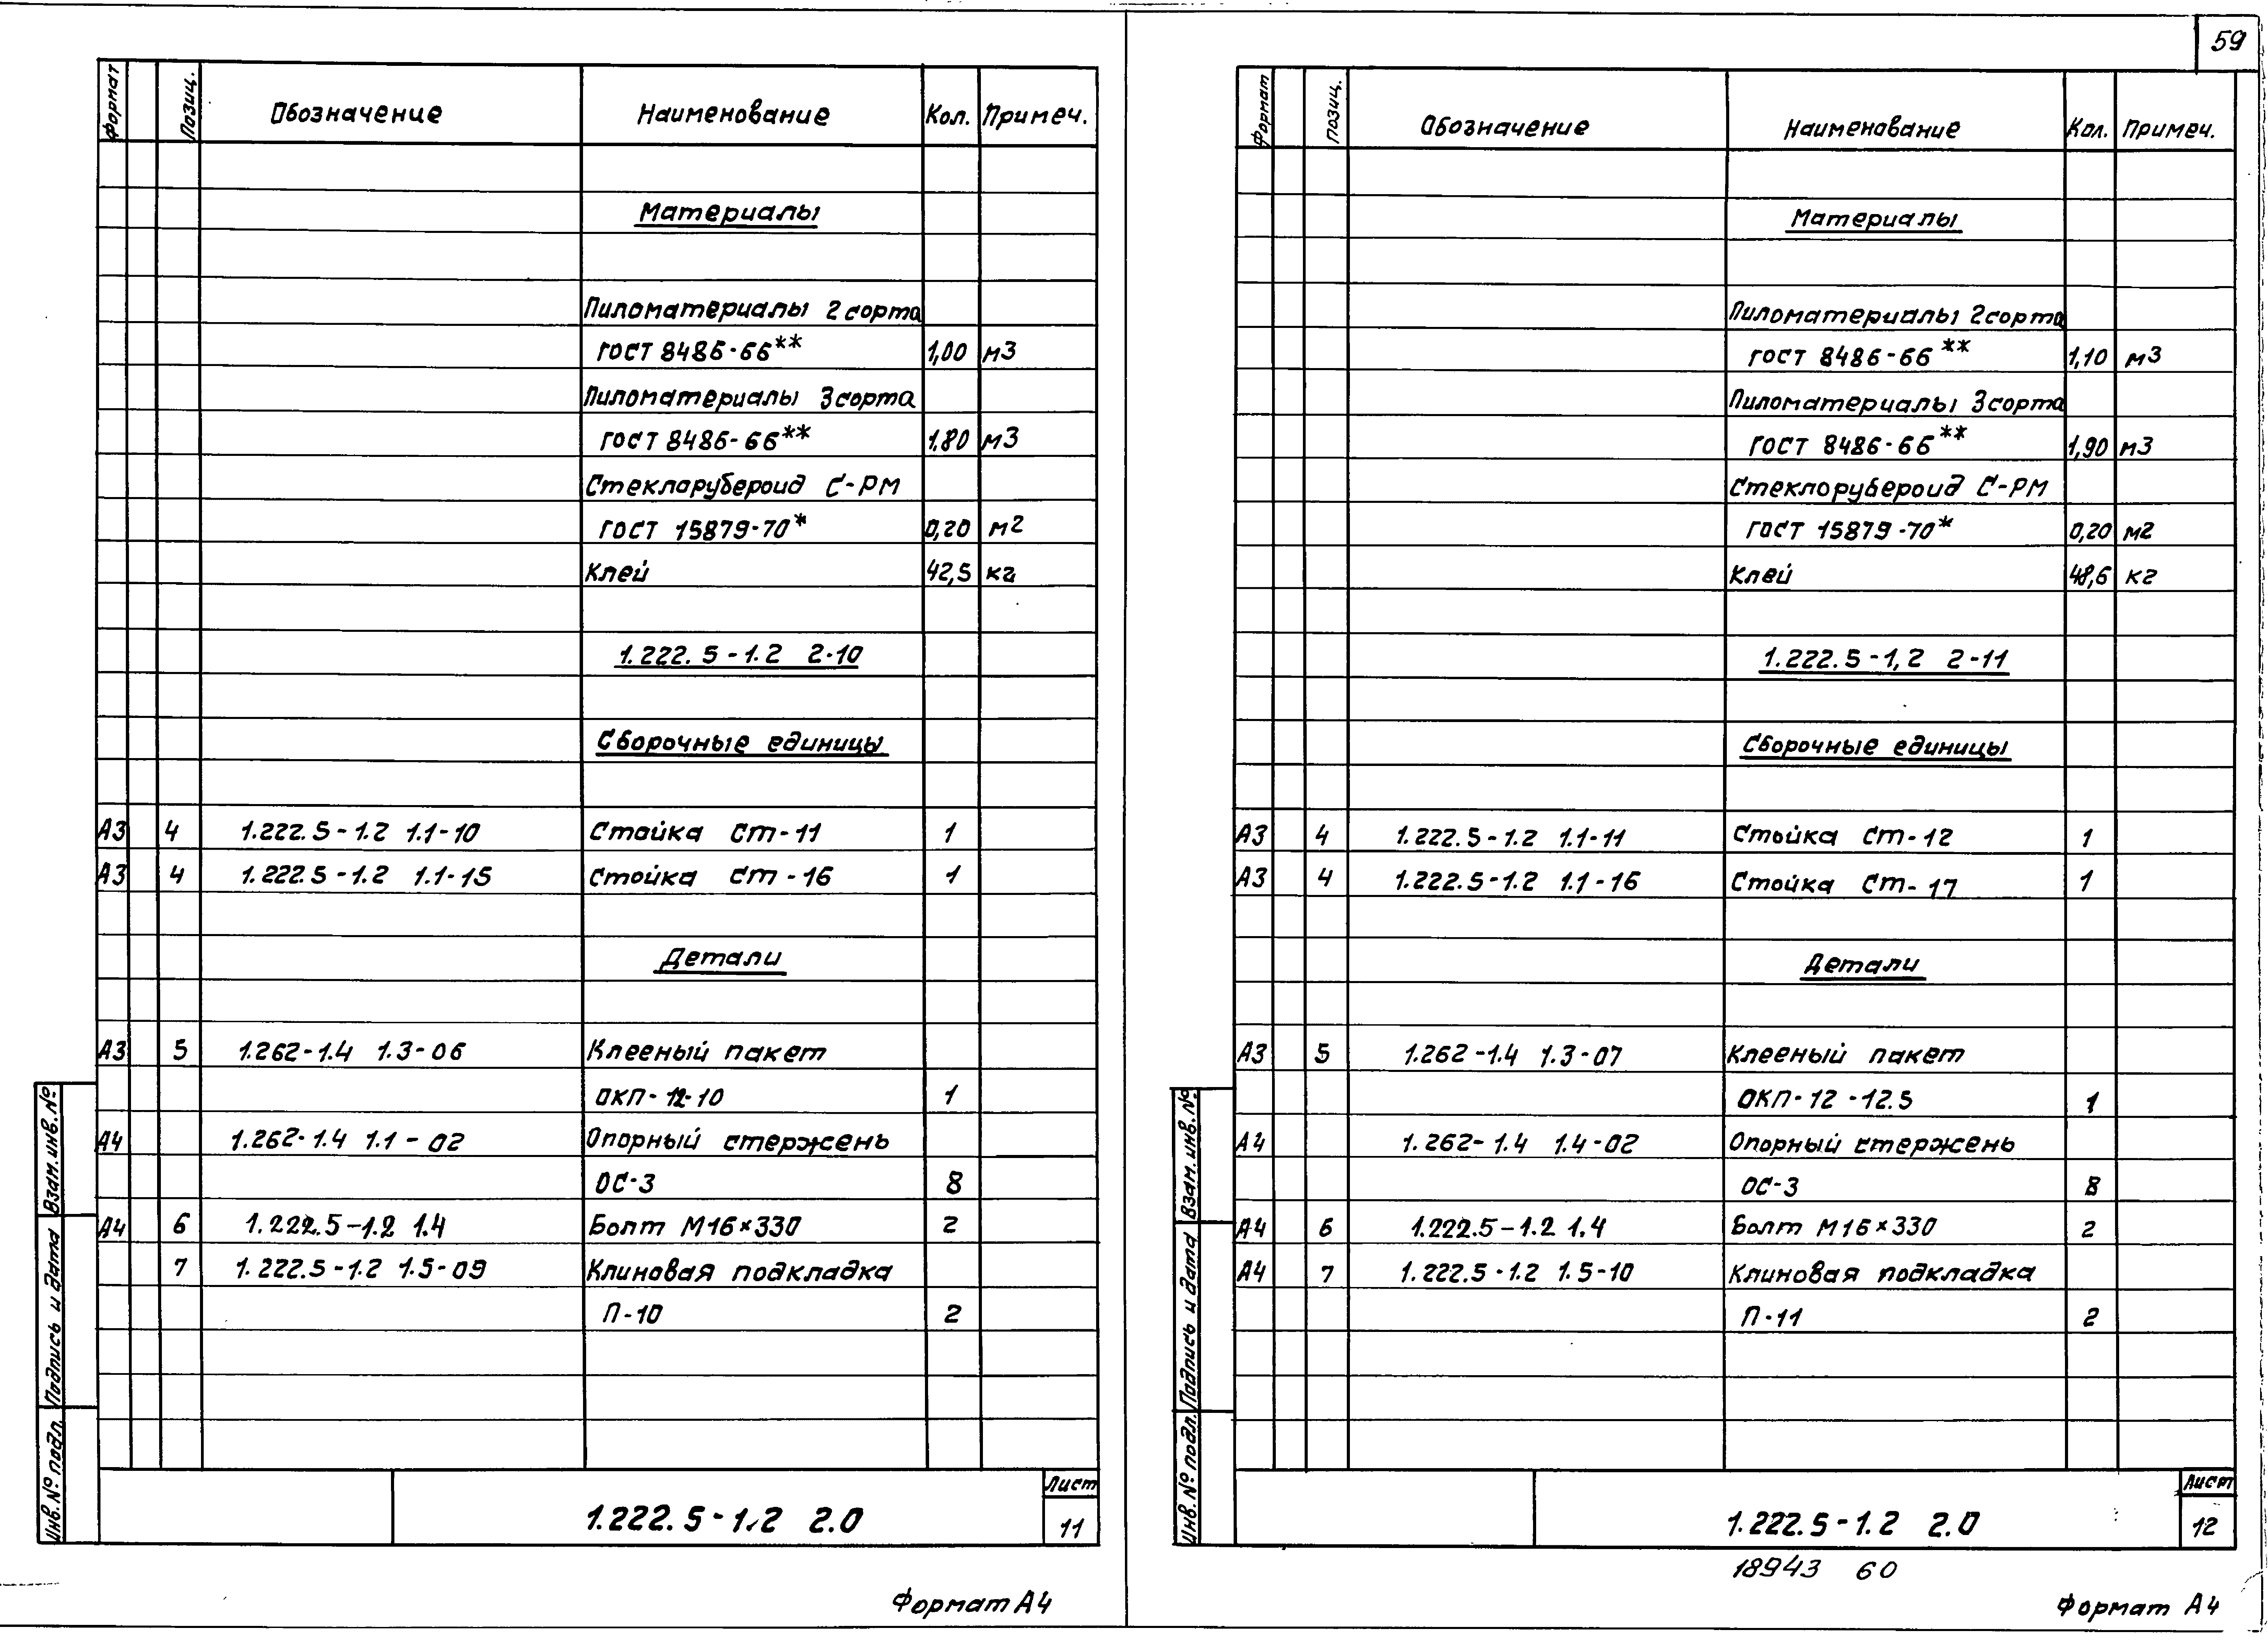 59
Формат Позиц. Обозначение Наименование Кол. Примеч.
Материалы
Пиломатериалы 2 сорта
ГОСТ 8486-66** 1,00 м3
Пиломатериалы 3 сорта
ГОСТ 8486-66** 1,80 м3
Стеклорубероид С-РМ
ГОСТ 15879-70* 0,20 м2
Клей 42,5 кг
1.222.5-1.2 2-10
Сборочные единицы
А3 4 1.222.5-1.2 1.1-10 Стойка Ст-11 1
А3 4 1.222.5-1.2 1.1-15 Стойка Ст-16 1
Детали
А3 5 1.262-1.4 1.3-06 Клееный пакет
ОКП-12-10 1
А4 1.262-1.4 1.1-02 Опорный стержень
ОС-3 8
А4 6 1.222.5-1.2 1.4 Болт М16×330 2
7 1.222.5-1.2 1.5-09 Клиновая подкладка
П-10 2
Инв.№ подл. Подпись и дата Взам.инв.№
1.222.5-1.2 2.0
Лист
11
Формат А4
Формат Позиц. Обозначение Наименование Кол. Примеч.
Материалы
Пиломатериалы 2 сорта
ГОСТ 8486-66** 1,10 м3
Пиломатериалы 3 сорта
ГОСТ 8486-66** 1,90 м3
Стеклорубероид С-РМ
ГОСТ 15879-70* 0,20 м2
Клей 48,6 кг
1.222.5-1,2 2-11
Сборочные единицы
А3 4 1.222.5-1.2 1.1-11 Стойка Ст-12 1
А3 4 1.222.5-1.2 1.1-16 Стойка Ст-17 1
Детали
А3 5 1.262-1.4 1.3-07 Клееный пакет
ОКП-12-12.5 1
А4 1.262-1.4 1.4-02 Опорный стержень
ОС-3 8
А4 6 1.222.5-1.2 1.4 Болт М16×330 2
А4 7 1.222.5-1.2 1.5-10 Клиновая подкладка
П-11 2
Инв.№ подл. Подпись и дата Взам.инв.№
1.222.5-1.2 2.0
Лист
12
18943 60
Формат А4